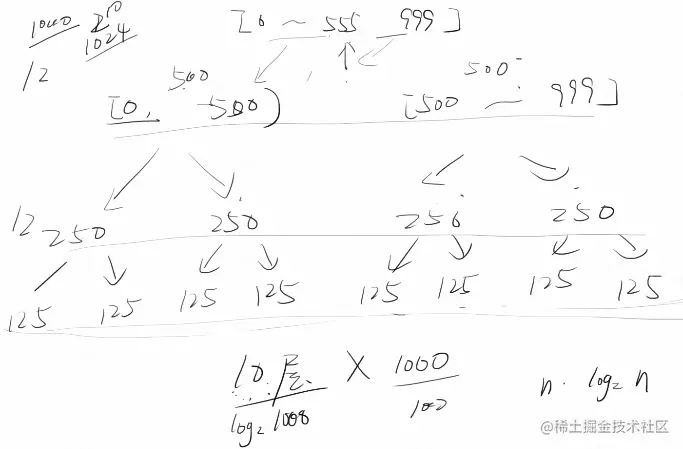 1000
1024
/2
[0 ~ 555 999]
500 500
[0, 500) [500 ~ 999]
12 250 250 250 250
125 125 125 125 125 125 125 125
10层 × 1000 n · log₂ n
log₂ 1000
@稀土掘金技术社区